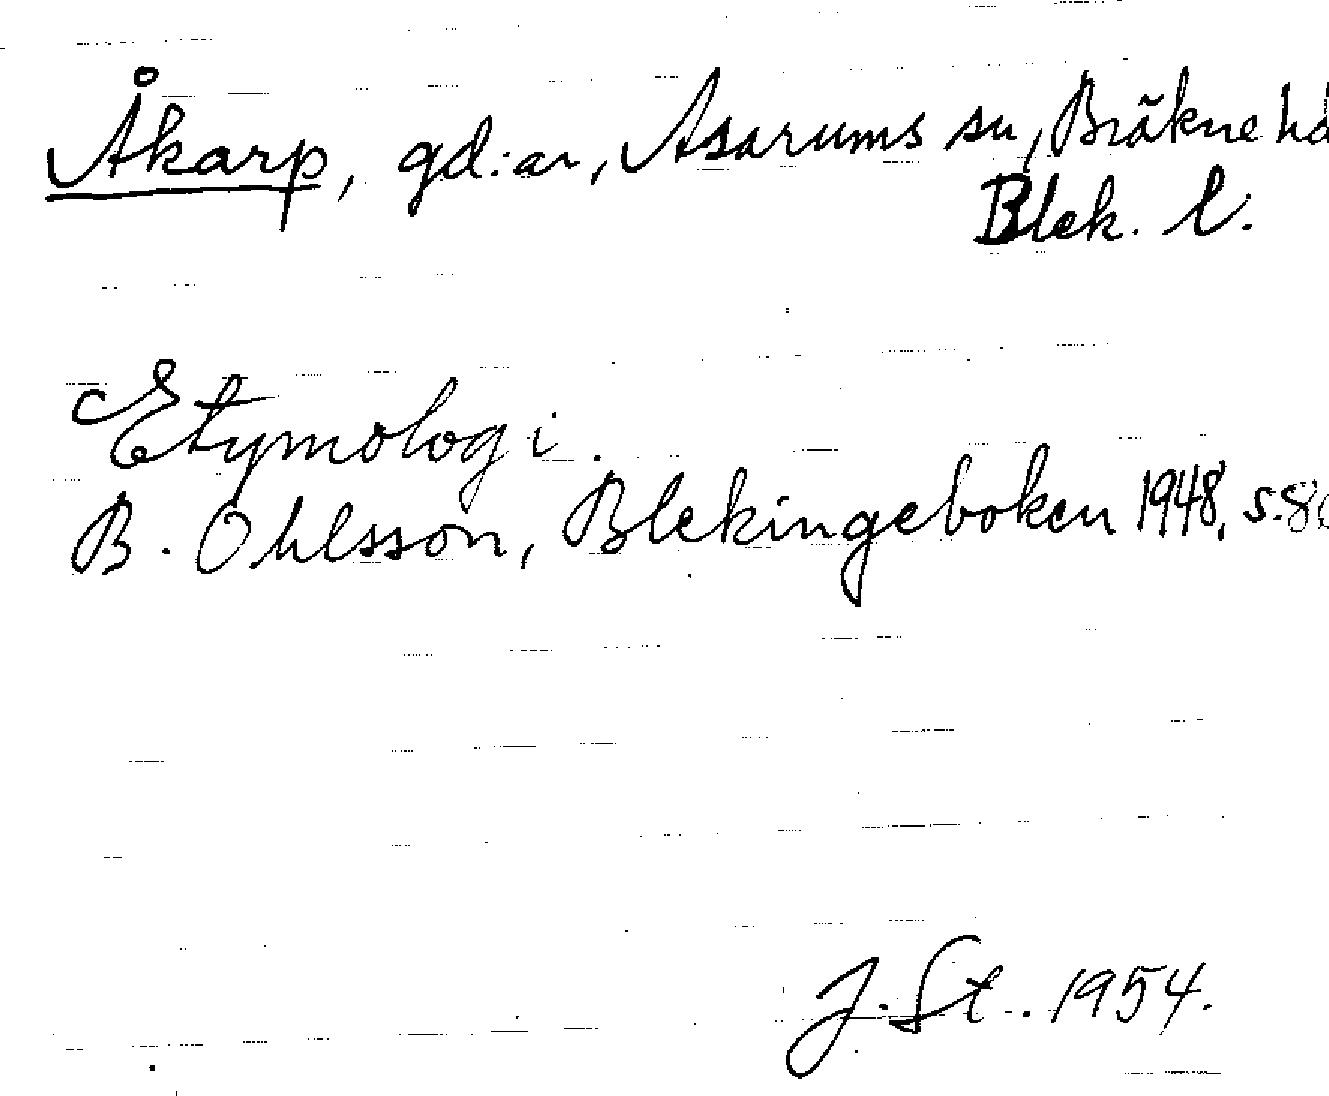 Åkarp, gd:ar, Asarums sn, Bräkne hd
Blek. l.
Etymologi.
B. Ohlsson, Blekingeboken 1948, s.
J. St. 1954.